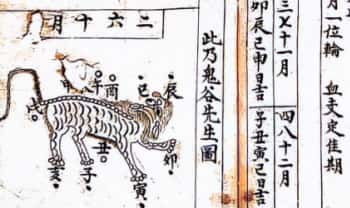 月一位輪 血支定佳期
三七十一月 四八十二月
卯辰巳申日吉 子丑寅巳日吉
此乃鬼谷先生圖
二六十月
辰
巳
酉
午
戌
卯
丑
寅
子
亥